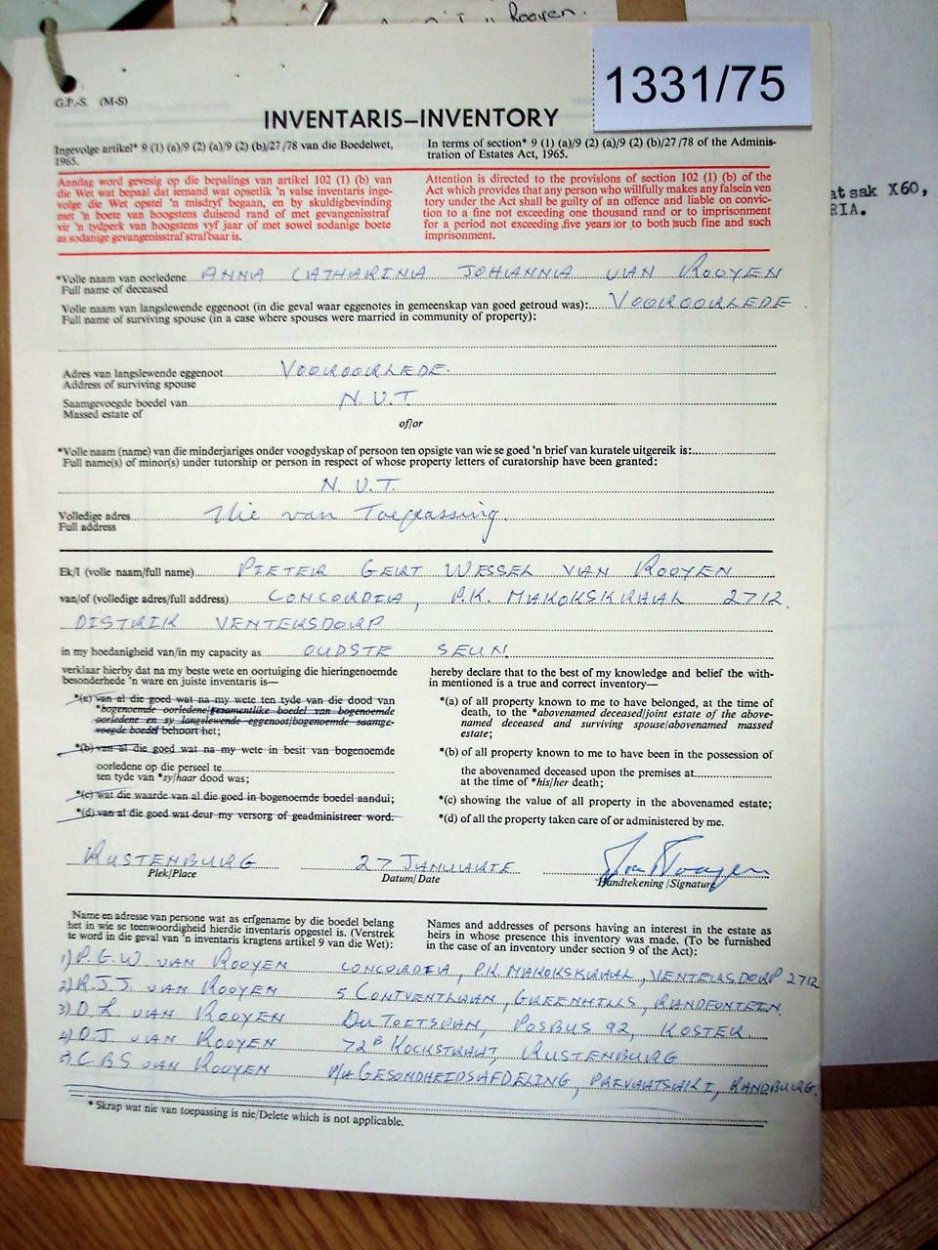 Rooyen.
1331/75
G.P.-S. (M-S)
INVENTARIS—INVENTORY
Ingevolge artikel* 9 (1) (a)/9 (2) (a)/9 (2) (b)/27/78 van die Boedelwet,
1965.
In terms of section* 9 (1) (a)/9 (2) (a)/9 (2) (b)/27/78 of the Adminis-
tration of Estates Act, 1965.
Aandag word gevestig op die bepalings van artikel 102 (1) (b) van
die Wet wat bepaal dat iemand wat opsetlik 'n valse inventaris inge-
volge die Wet opstel 'n misdryf begaan, en by skuldigbevinding
met 'n boete van hoogstens duisend rand of met gevangenisstraf
vir 'n tydperk van hoogstens vyf jaar of met sowel sodanige boete
as sodanige gevangenisstraf strafbaar is.
Attention is directed to the provisions of section 102 (1) (b) of the
Act which provides that any person who willfully makes any falsein ven
tory under the Act shall be guilty of an offence and liable on convic-
tion to a fine not exceeding one thousand rand or to imprisonment
for a period not exceeding five years or to both such fine and such
imprisonment.
at sak X60,
RIA.
*Volle naam van oorledene ANNA CATHARINA JOHANNA VAN ROOYEN
Full name of deceased
Volle naam van langslewende eggenoot (in die geval waar eggenotes in gemeenskap van goed getroud was): VOOROORLEDE
Full name of surviving spouse (in a case where spouses were married in community of property):
Adres van langslewende eggenoot VOOROORLEDE.
Address of surviving spouse
Saamgevoegde boedel van N.V.T
Massed estate of
of/or
*Volle naam (name) van die minderjariges onder voogdyskap of persoon ten opsigte van wie se goed 'n brief van kuratele uitgereik is:
Full name(s) of minor(s) under tutorship or person in respect of whose property letters of curatorship have been granted:
N.V.T.
Volledige adres Nie van Toepassing.
Full address
Ek/I (volle naam/full name) PIETER GERT WESSEL VAN ROOYEN
van/of (volledige adres/full address) CONCORDIA, P.K. MAKOKSKRAAL 2712.
DISTRIK VENTERSDORP
in my hoedanigheid van/in my capacity as OUDSTE SEUN.
verklaar hierby dat na my beste wete en oortuiging die hieringenoemde
besonderhede 'n ware en juiste inventaris is—
*(a) van al die goed wat na my wete ten tyde van die dood van
*bogenoemde oorledene/gesamentlike boedel van bogenoemde
oorledene en sy langslewende eggenoot/bogenoemde saamge-
voegde boedel behoort het;
*(b) van al die goed wat na my wete in besit van bogenoemde
oorledene op die perseel te
ten tyde van *sy/haar dood was;
*(c) wat die waarde van al die goed in bogenoemde boedel aandui;
*(d) van al die goed wat deur my versorg of geadministreer word.
hereby declare that to the best of my knowledge and belief the with-
in mentioned is a true and correct inventory—
*(a) of all property known to me to have belonged, at the time of
death, to the *abovenamed deceased/joint estate of the above-
named deceased and surviving spouse/abovenamed massed
estate;
*(b) of all property known to me to have been in the possession of
the abovenamed deceased upon the premises at
at the time of *his/her death;
*(c) showing the value of all property in the abovenamed estate;
*(d) of all the property taken care of or administered by me.
RUSTENBURG 27 JANUARIE
Plek/Place Datum/Date Handtekening/Signature
Name en adresse van persone wat as erfgename by die boedel belang
het in wie se teenwoordigheid hierdie inventaris opgestel is. (Verstrek
te word in die geval van 'n inventaris kragtens artikel 9 van die Wet):
Names and addresses of persons having an interest in the estate as
heirs in whose presence this inventory was made. (To be furnished
in the case of an inventory under section 9 of the Act):
1) P.G.W VAN ROOYEN CONCORDIA, P.K. MAKOKSKRAAL, VENTERSDORP 2712
2) R.J.J. VAN ROOYEN 5 CONTVENTLAAN, GREENHILLS, RANDFONTEIN.
3) D.L. VAN ROOYEN DUTOITSPAN, POSBUS 92, KOSTER
4) O.J VAN ROOYEN 72B KOCKSTRAAT, RUSTENBURG
5) C.B.S VAN ROOYEN P/A GESONDHEIDSAFDELING, RANDBURG
* Skrap wat nie van toepassing is nie/Delete which is not applicable.